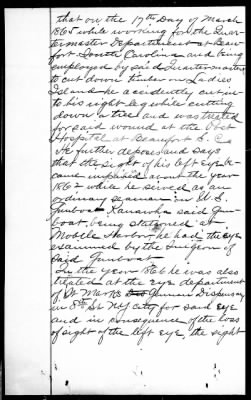 that on the 17th Day of March
1865 while working for the Quar-
termaster Department at Beau-
fort South Carolina and being
employed by said Quartermaster
to cut down timber on Ladies
Island he accidently cut in-
to his right leg while cutting
down a tree and was treated
for said wound at the Post
Hospital at Beaufort S. C.
he further deposes and says
that the sight of his left eye be-
came impaired about the year
1862 while he served as an
ordinary seaman in U.S.
Gunboat Kanawha said Gun-
boat being stationed at
Mobile Harbor, he had the eye
examined by the surgeon of
said Gunboat
In the year 1866 he was also
treated at the eye department
of St Marks German Dispensary
in 8th St N.Y. City for said eye
and in consequence of the loss
of sight of the left eye, the sight